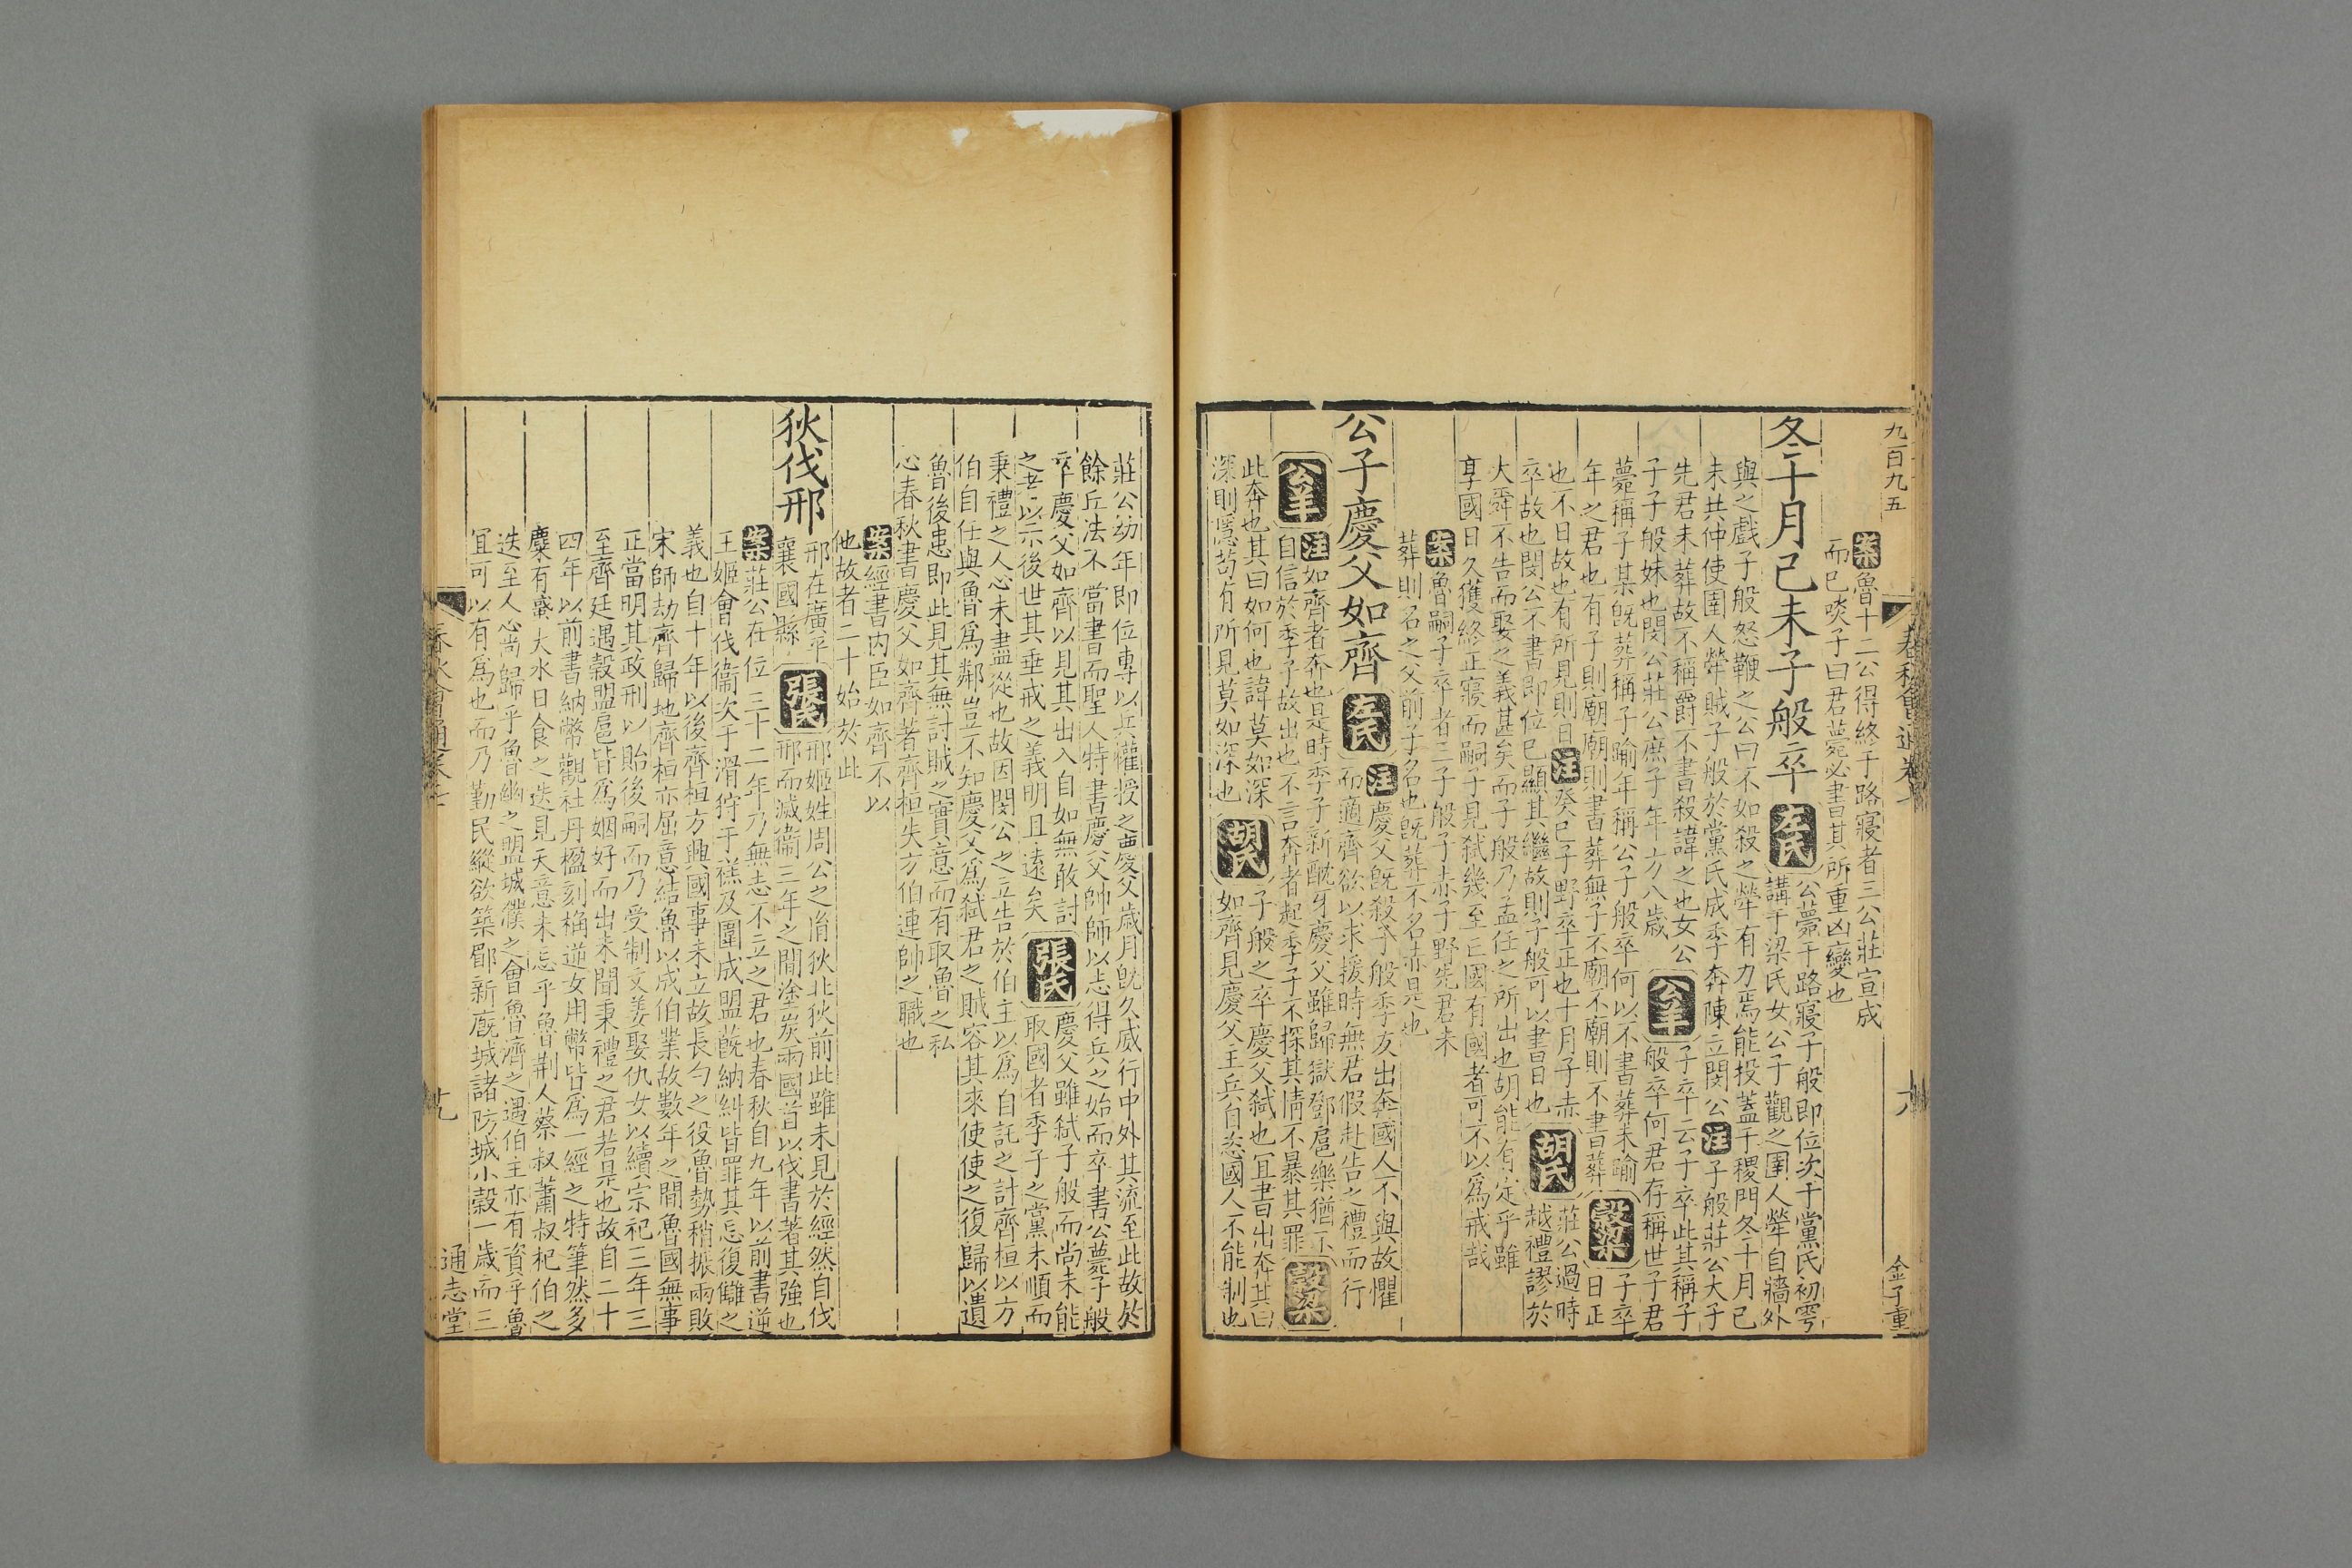 九百九五
春秋會通卷七
六
金子重
案魯十二公得終于路寢者三公莊宣成
而已啖子曰君薨必書其所重凶變也
冬十月己未子般卒
左氏
公薨于路寢子般即位次于黨氏初雩
講于梁氏女公子觀之圉人犖自牆外
與之戲子般怒鞭之公曰不如殺之犖有力焉能投蓋于稷門冬十月己
未共仲使圉人犖賊子般於黨氏成季奔陳立閔公注子般莊公大子
先君未葬故不稱爵不書殺諱之也女公
子子般妹也閔公莊公庶子年方八歲
公羊
子卒云子卒此其稱子
般卒何君存稱世子君
薨稱子某旣葬稱子踰年稱公子般卒何以不書葬未踰
年之君也有子則廟廟則書葬無子不廟不廟則不書葬
穀梁
子卒
日正
也不日故也有所見則日注癸巳子野卒正也十月子赤
卒故也閔公不書即位已顯其繼故則子般可以書日也
胡氏
莊公過時
越禮謬於
大舜不告而娶之義甚矣而子般乃孟任之所出也胡能有定乎雖
享國日久獲終正寢而嗣子見弑幾至亡國有國者可不以爲戒哉
案魯嗣子卒者三子般子赤子野先君未
葬則名之父前子名也旣葬不名赤是也
公子慶父如齊
左氏
注慶父旣殺子般季友出奔國人不與故懼
而適齊欲以求援時無君假赴告之禮而行
公羊
注如齊者奔也是時季子新酖牙慶父雖歸獄鄧扈樂猶不
自信於季子故出也不言奔者起季子不探其情不暴其罪
穀梁
此奔也其曰如何也諱莫如深
深則隱苟有所見莫如深也
胡氏
子般之卒慶父弑也宜書出奔其曰
如齊見慶父主兵自恣國人不能制也
莊公幼年即位專以兵權授之慶父歲月旣久威行中外其流至此故於
餘丘法不當書而聖人特書慶父帥師以志得兵之始而卒書公薨子般
卒慶父如齊以見其出入自如無敢討
之者以示後世其垂戒之義明且遠矣
張氏
慶父雖弑子般而尚未能
取國者季子之黨未順而
秉禮之人心未盡從也故因閔公之立告於伯主以爲自託之計齊桓以方
伯自任與魯爲鄰豈不知慶父爲弑君之賊容其來使使之復歸以遺
魯後患即此見其無討賊之實意而有取魯之私
心春秋書慶父如齊者著齊桓失方伯連帥之職也
案經書内臣如齊不以
他故者二十始於此
狄伐邢
邢在廣平
襄國縣
張氏
邢姬姓周公之胤狄北狄前此雖未見於經然自伐
邢而滅衞三年之間塗炭兩國首以伐書著其強也
案莊公在位三十二年乃無志不立之君也春秋自九年以前書逆
王姬會伐衞次于滑狩于禚及圍成盟蔇納糾皆罪其忘復讎之
義也自十年以後齊桓方興國事未立故長勺之役魯勢稍振兩敗
宋師劫齊歸地齊桓亦屈意結魯以成伯業故數年之間魯國無事
正當明其政刑以貽後嗣而乃受制文姜娶仇女以續宗祀三年三
至齊廷遇穀盟扈皆爲姻好而出未聞秉禮之君若是也故自二十
四年以前書納幣觀社丹楹刻桷逆女用幣皆爲一經之特筆然多
麋有蜚大水日食之迭見天意未忘乎魯荆人蔡叔蕭叔杞伯之
迭至人心尚歸乎魯幽之盟城濮之會魯濟之遇伯主亦有資乎魯
宜可以有爲也而乃勤民縱欲築郿新廐城諸防城小穀一歲而三
春秋會通卷七
十九
通志堂